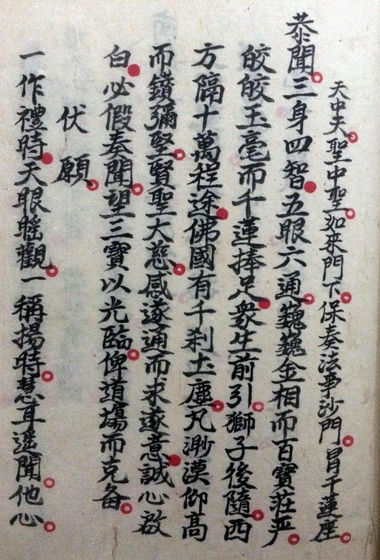 天中天聖中聖如來門下保奏法事沙門冒干蓮座
恭聞三身四智五眼六通巍巍金相而百寶莊严
皎皎玉毫而千蓮捧足衆生前引獅子後隨西
方隔十萬程途佛國有千刹土塵凡渺漠仰高
而鑽彌堅賢聖大慈感遂通而求遂意誠心啟
白必假奏聞望三寶以光臨俾道塲而克俻
伏願
一作禮時天眼䀽觀一稱揚時慧耳遥聞他心